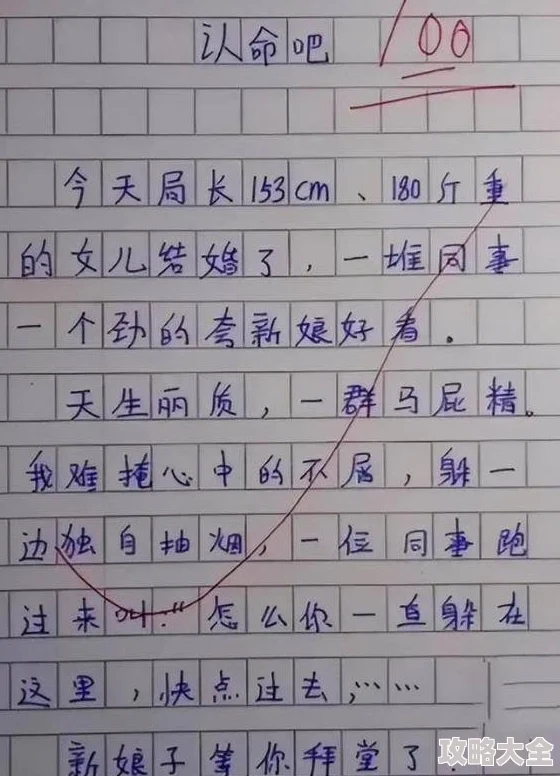 认命吧 100
今天局长153cm、180斤重
的女儿结婚了，一堆同事
一个劲的夸新娘好看。
天生丽质，一群马屁精。
我难掩心中的不屑，躲一
边独自抽烟，一位同事跑
过来叫："怎么你一直躲在
这里，快点过去，……
新娘子等你拜堂了
攻略大全